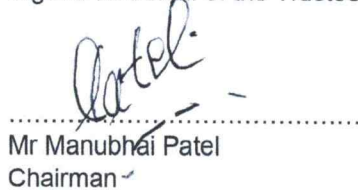 Patel.
Mr Manubhai Patel
Chairman